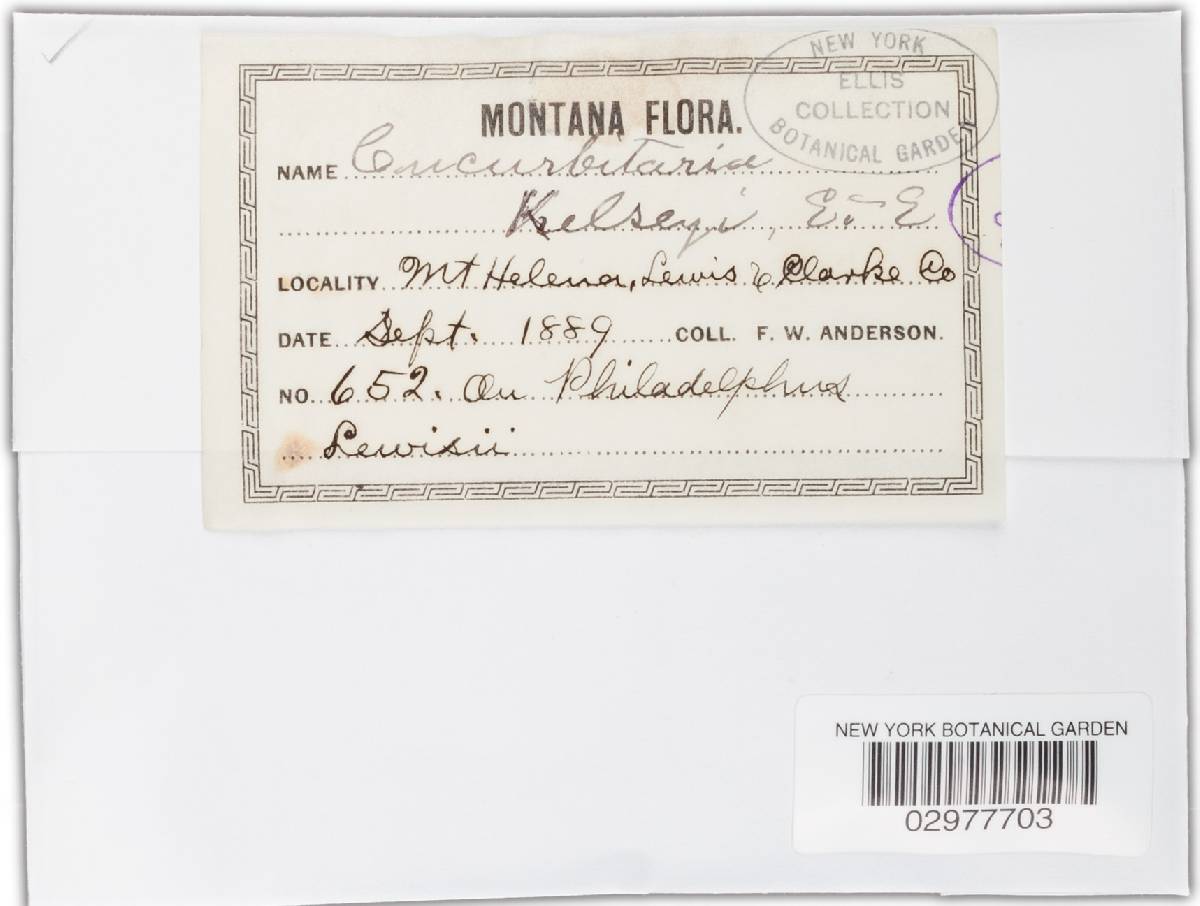 NEW YORK
ELLIS
COLLECTION
BOTANICAL GARDEN
MONTANA FLORA.
NAME Cucurbitaria
Kelseyi, E. & E
LOCALITY Mt Helena, Lewis & Clarke Co
DATE Sept. 1889 COLL. F. W. ANDERSON.
NO. 652. On Philadelphus
Lewisii
NEW YORK BOTANICAL GARDEN
02977703